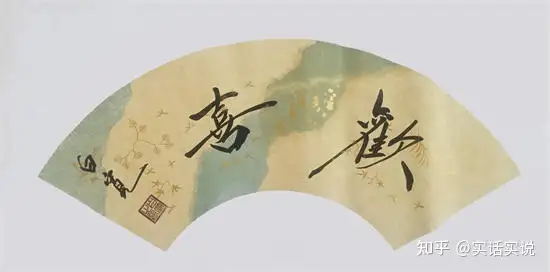 歡喜
知乎 @实话实说